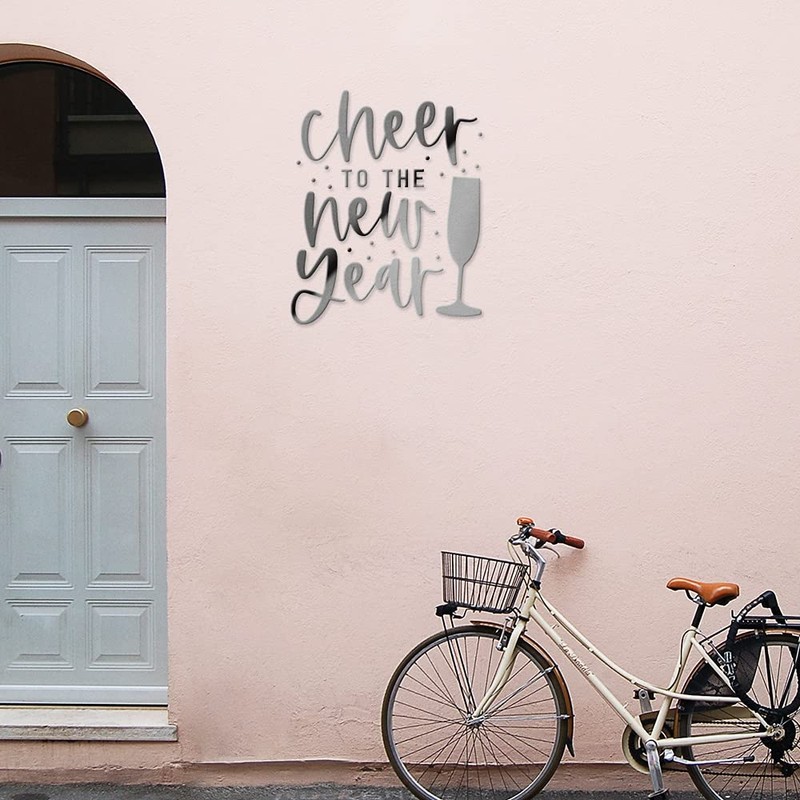 cheer
TO THE
new
year